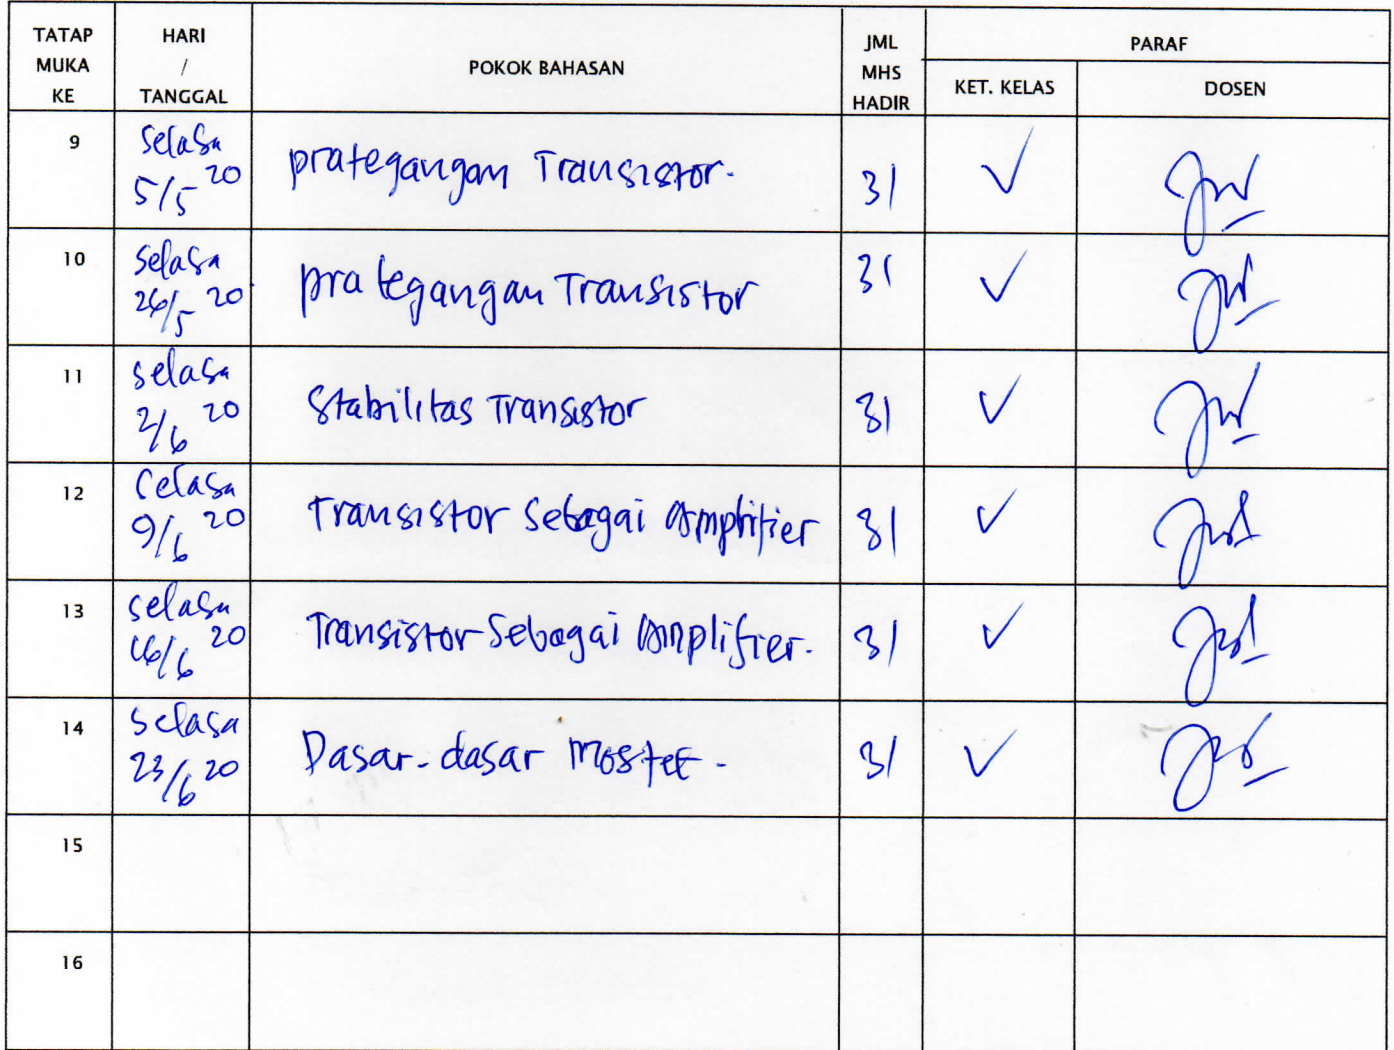 TATAP MUKA KE HARI / TANGGAL POKOK BAHASAN JML MHS HADIR PARAF
KET. KELAS DOSEN
9 Selasa 5/5 20 prategangan Transistor. 31 ✓
10 Selasa 26/5 20 pra tegangan Transistor 31 ✓
11 Selasa 2/6 20 Stabilitas Transistor 31 ✓
12 Selasa 9/6 20 Transistor Sebagai Amplifier 31 ✓
13 Selasa 16/6 20 Transistor Sebagai Amplifier. 31 ✓
14 Selasa 23/6 20 Dasar-dasar Mosfet. 31 ✓
15
16